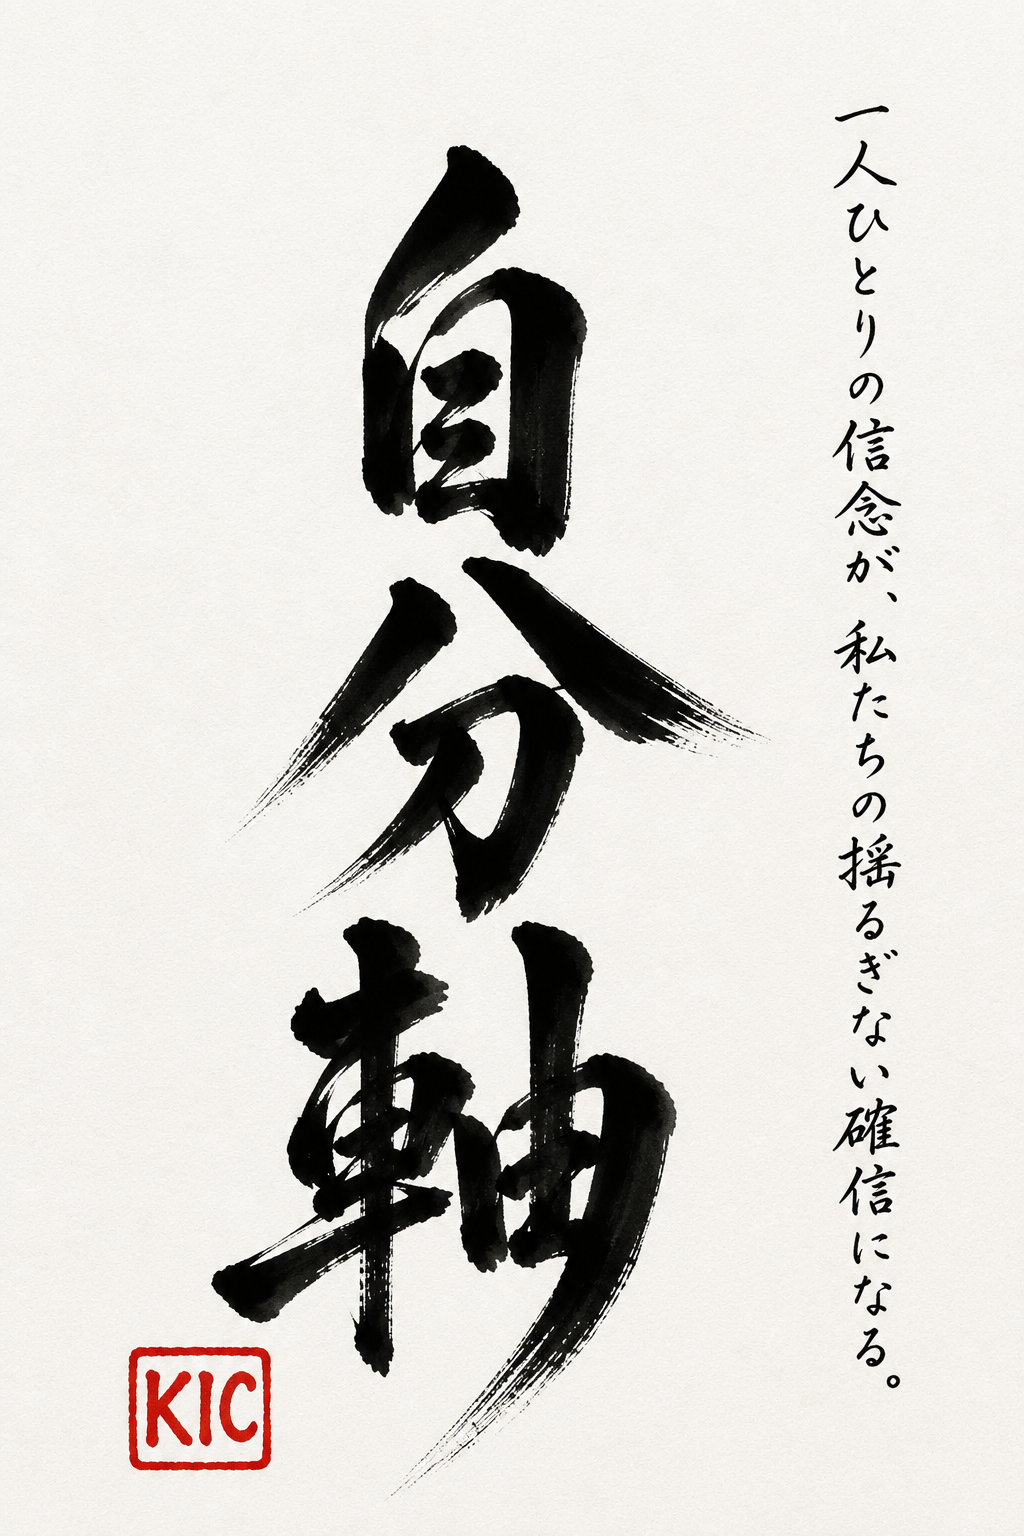 一人ひとりの信念が、私たちの揺るぎない確信になる。
自分軸
KIC